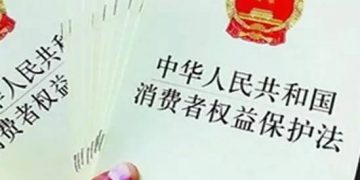 中华人民共和国
消费者权益保护法
中华人民共和国
消费者权益